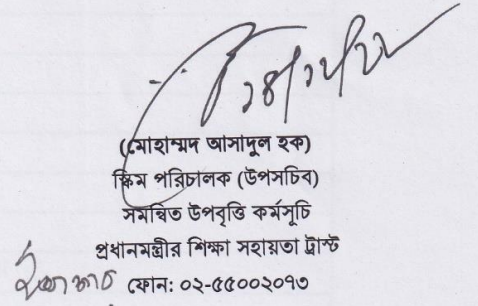 (মোহাম্মদ আসাদুল হক)
স্কিম পরিচালক (উপসচিব)
সমন্বিত উপবৃত্তি কর্মসূচি
প্রধানমন্ত্রীর শিক্ষা সহায়তা ট্রাস্ট
ফোন: ০২-৫৫০০২০১৩